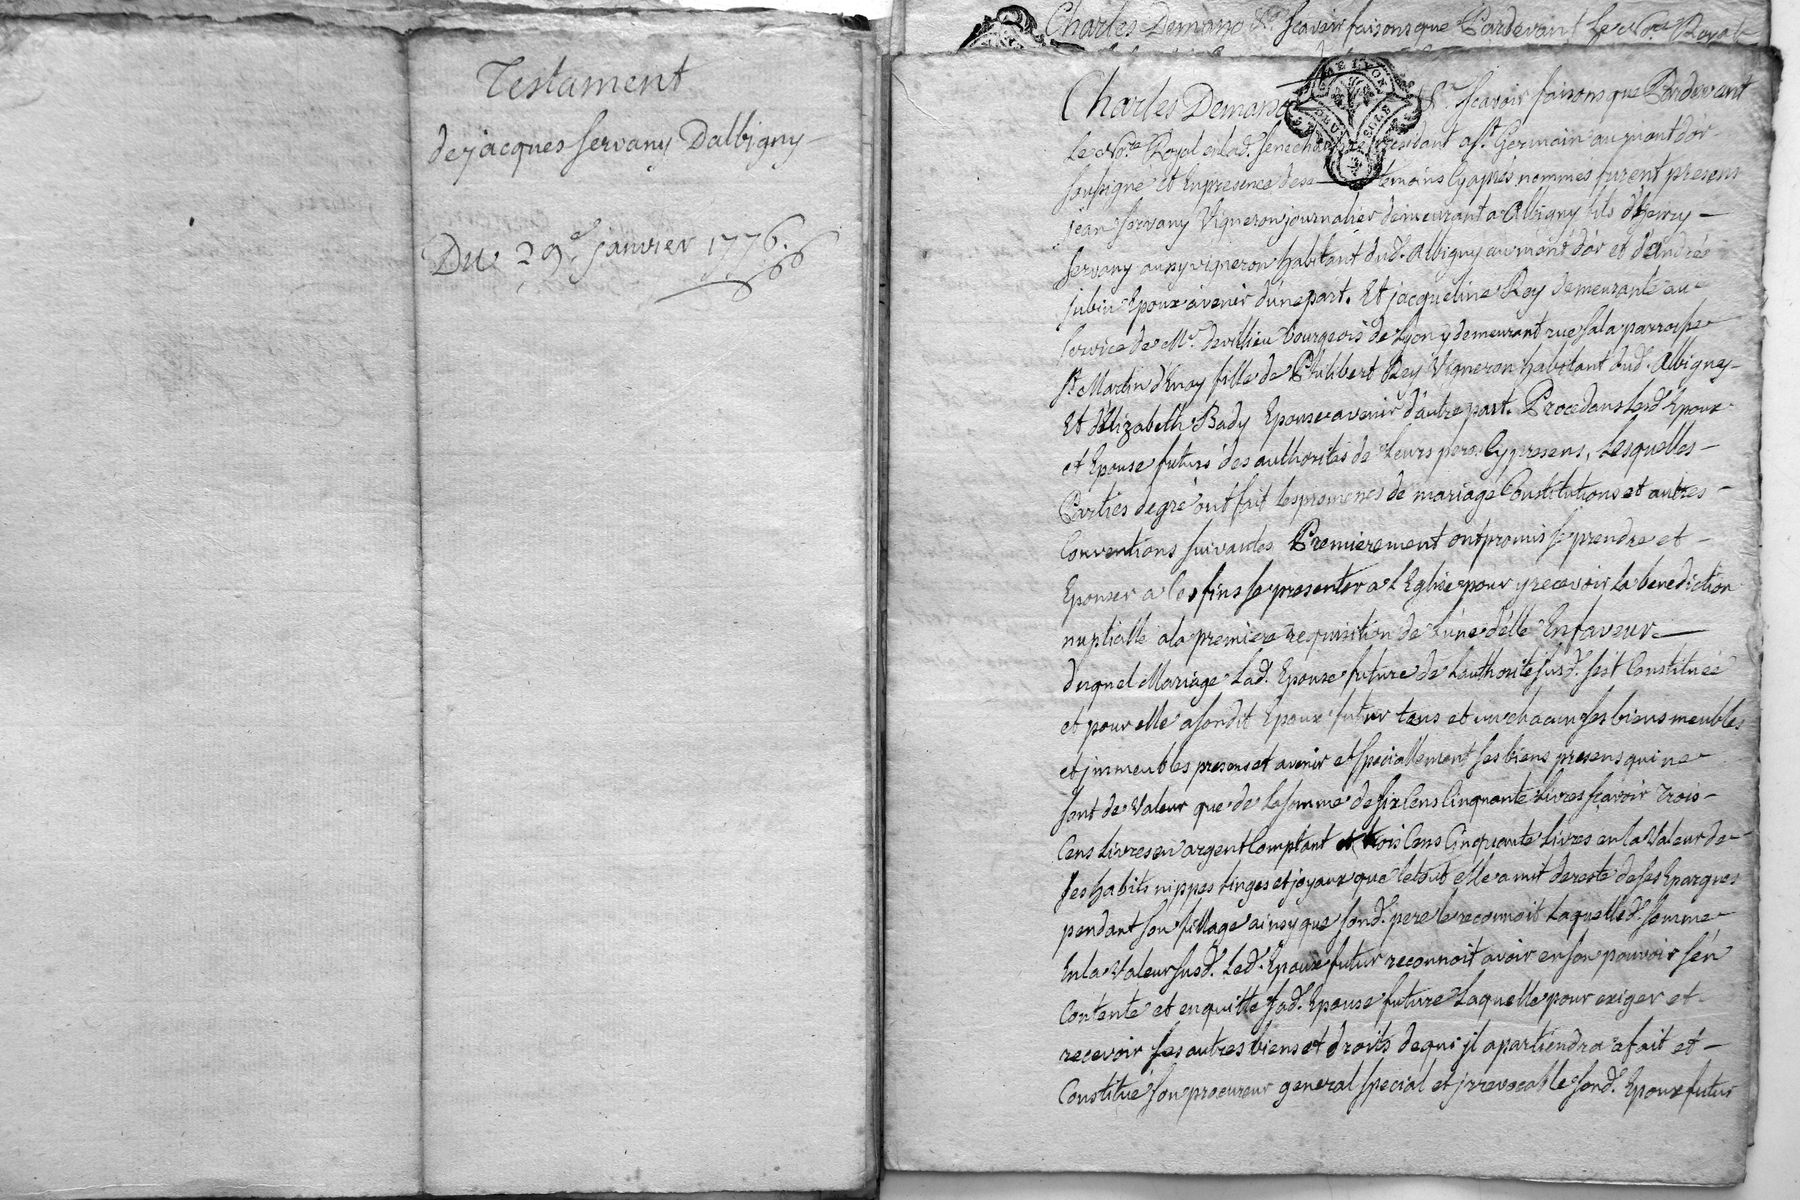 Testament
de jacques Servany Dalbigny
Du 29.e janvier 1776.
Charles Demano &.a Scavoir faisons que Pardevant Le No.re Royal
Charles Demano &.a Scavoir faisons que Pardevant
DE LYON
Le No.re Royal en lad. Senechaussée résidant a S.t Germain au mont d'ór
Soussigné et En presence des temoins Cy aprés nommés furent presens
jean Servany Vigneron journalier demeurant a Albigny fils d'henry
Servany aussy vigneron habitant dud. Albigny au mont d'ór et d'andrée
jubin Epoux avenir d'une part. Et jacqueline Rey demeurante au
Service de Mr. devillieu bourgeois de Lyon y demeurant rue Sala parroisse
S.t Martin d'Enay fille de Philibert Rey Vigneron habitant dud. Albigny
Et d'Elizabeth Bady Epouse avenir d'autre part. Procedans lesd. Epoux
et Epouse futurs des authorités de Leurs peres Cy presens, Lesquelles
Parties de gré ont fait les promesses de mariage Constitutions et autres
Conventions Suivantes Premierement ont promis se prendre et
Epouser a Ces fins se presenter a L'Eglise pour y recevoir La benediction
nuptialle a la premiere requisition de L'une d'elle En faveur
duquel Mariage Lad. Epouse future de L'authorité susd. s'est Constituée
et pour elle a sondit Epoux futur tous et un chacun ses biens meubles
et jmmeubles presens et avenir et speciallement ses biens presens qui ne
sont de Valeur que de La somme de six Cens Cinquante Livres scavoir trois
Cens Livres en argent Comptant et trois Cens Cinquante Livres en la Valeur de
ses habits nippes Linges et joyaux que le tout elle a mit de reste de ses Epargnes
pendant son fillage ainsy que sond. pere le reconnoit Laquelle d. somme
En la Valeur susd. Led. Epoux futur reconnoit avoir en son pouvoir s'en
Contente et en quitte sad. Epouse future Laquelle pour exiger et
recevoir ses autres biens et droits de qui jl apartiendra a fait et
Constitué son procureur general special et jrrevocable sond. Epoux futur